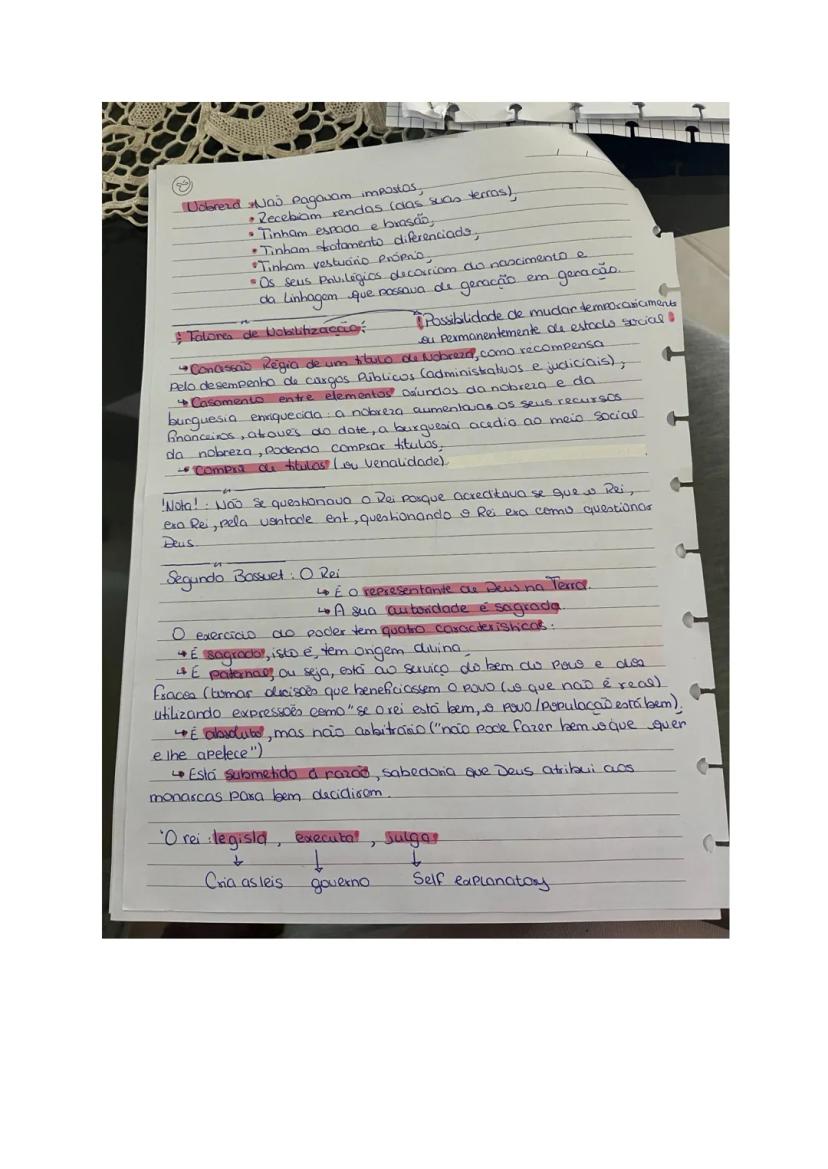 Nobreza • Não pagavam impostos,
• Recebiam rendas (das suas terras),
• Tinham espada e brasão,
• Tinham tratamento diferenciado,
• Tinham vestuário próprio,
• Os seus privilégios decorriam do nascimento e
da linhagem que passava de geração em geração.
Fatores de Mobilização:
! Possibilidade de mudar temporariamente
ou permanentemente de estado social
↳ Concessão Régia de um título de Nobreza, como recompensa
pelo desempenho de cargos públicos (administrativos e judiciais);
↳ Casamento entre elementos oriundos da nobreza e da
burguesia enriquecida: a nobreza aumentava os seus recursos
financeiros, através do dote, a burguesia acedia ao meio social
da nobreza, podendo comprar títulos,
↳ Compra de títulos (ou venalidade).
!Nota!: Não se questionava o Rei porque acreditava se que o Rei,
era Rei, pela vontade ent, questionando o Rei era como questionar
Deus.
Segundo Bossuet: O Rei
↳ É o representante de Deus na Terra.
↳ A sua autoridade é sagrada.
O exercício do poder tem quatro características:
↳ É sagrado, isto é, tem origem divina,
↳ É paternal, ou seja, está ao serviço do bem do povo e dos
fracos (tomar decisões que beneficiassem o povo (o que não é real)
utilizando expressões como "se o rei está bem, o povo/população está bem).
↳ É absoluto, mas não arbitrário ("não pode fazer bem o que quer
e lhe apetece")
↳ Está submetido à razão, sabedoria que Deus atribui aos
monarcas para bem decidirem.
O rei: legisla, executa, julga
Cria as leis governo Self explanatory